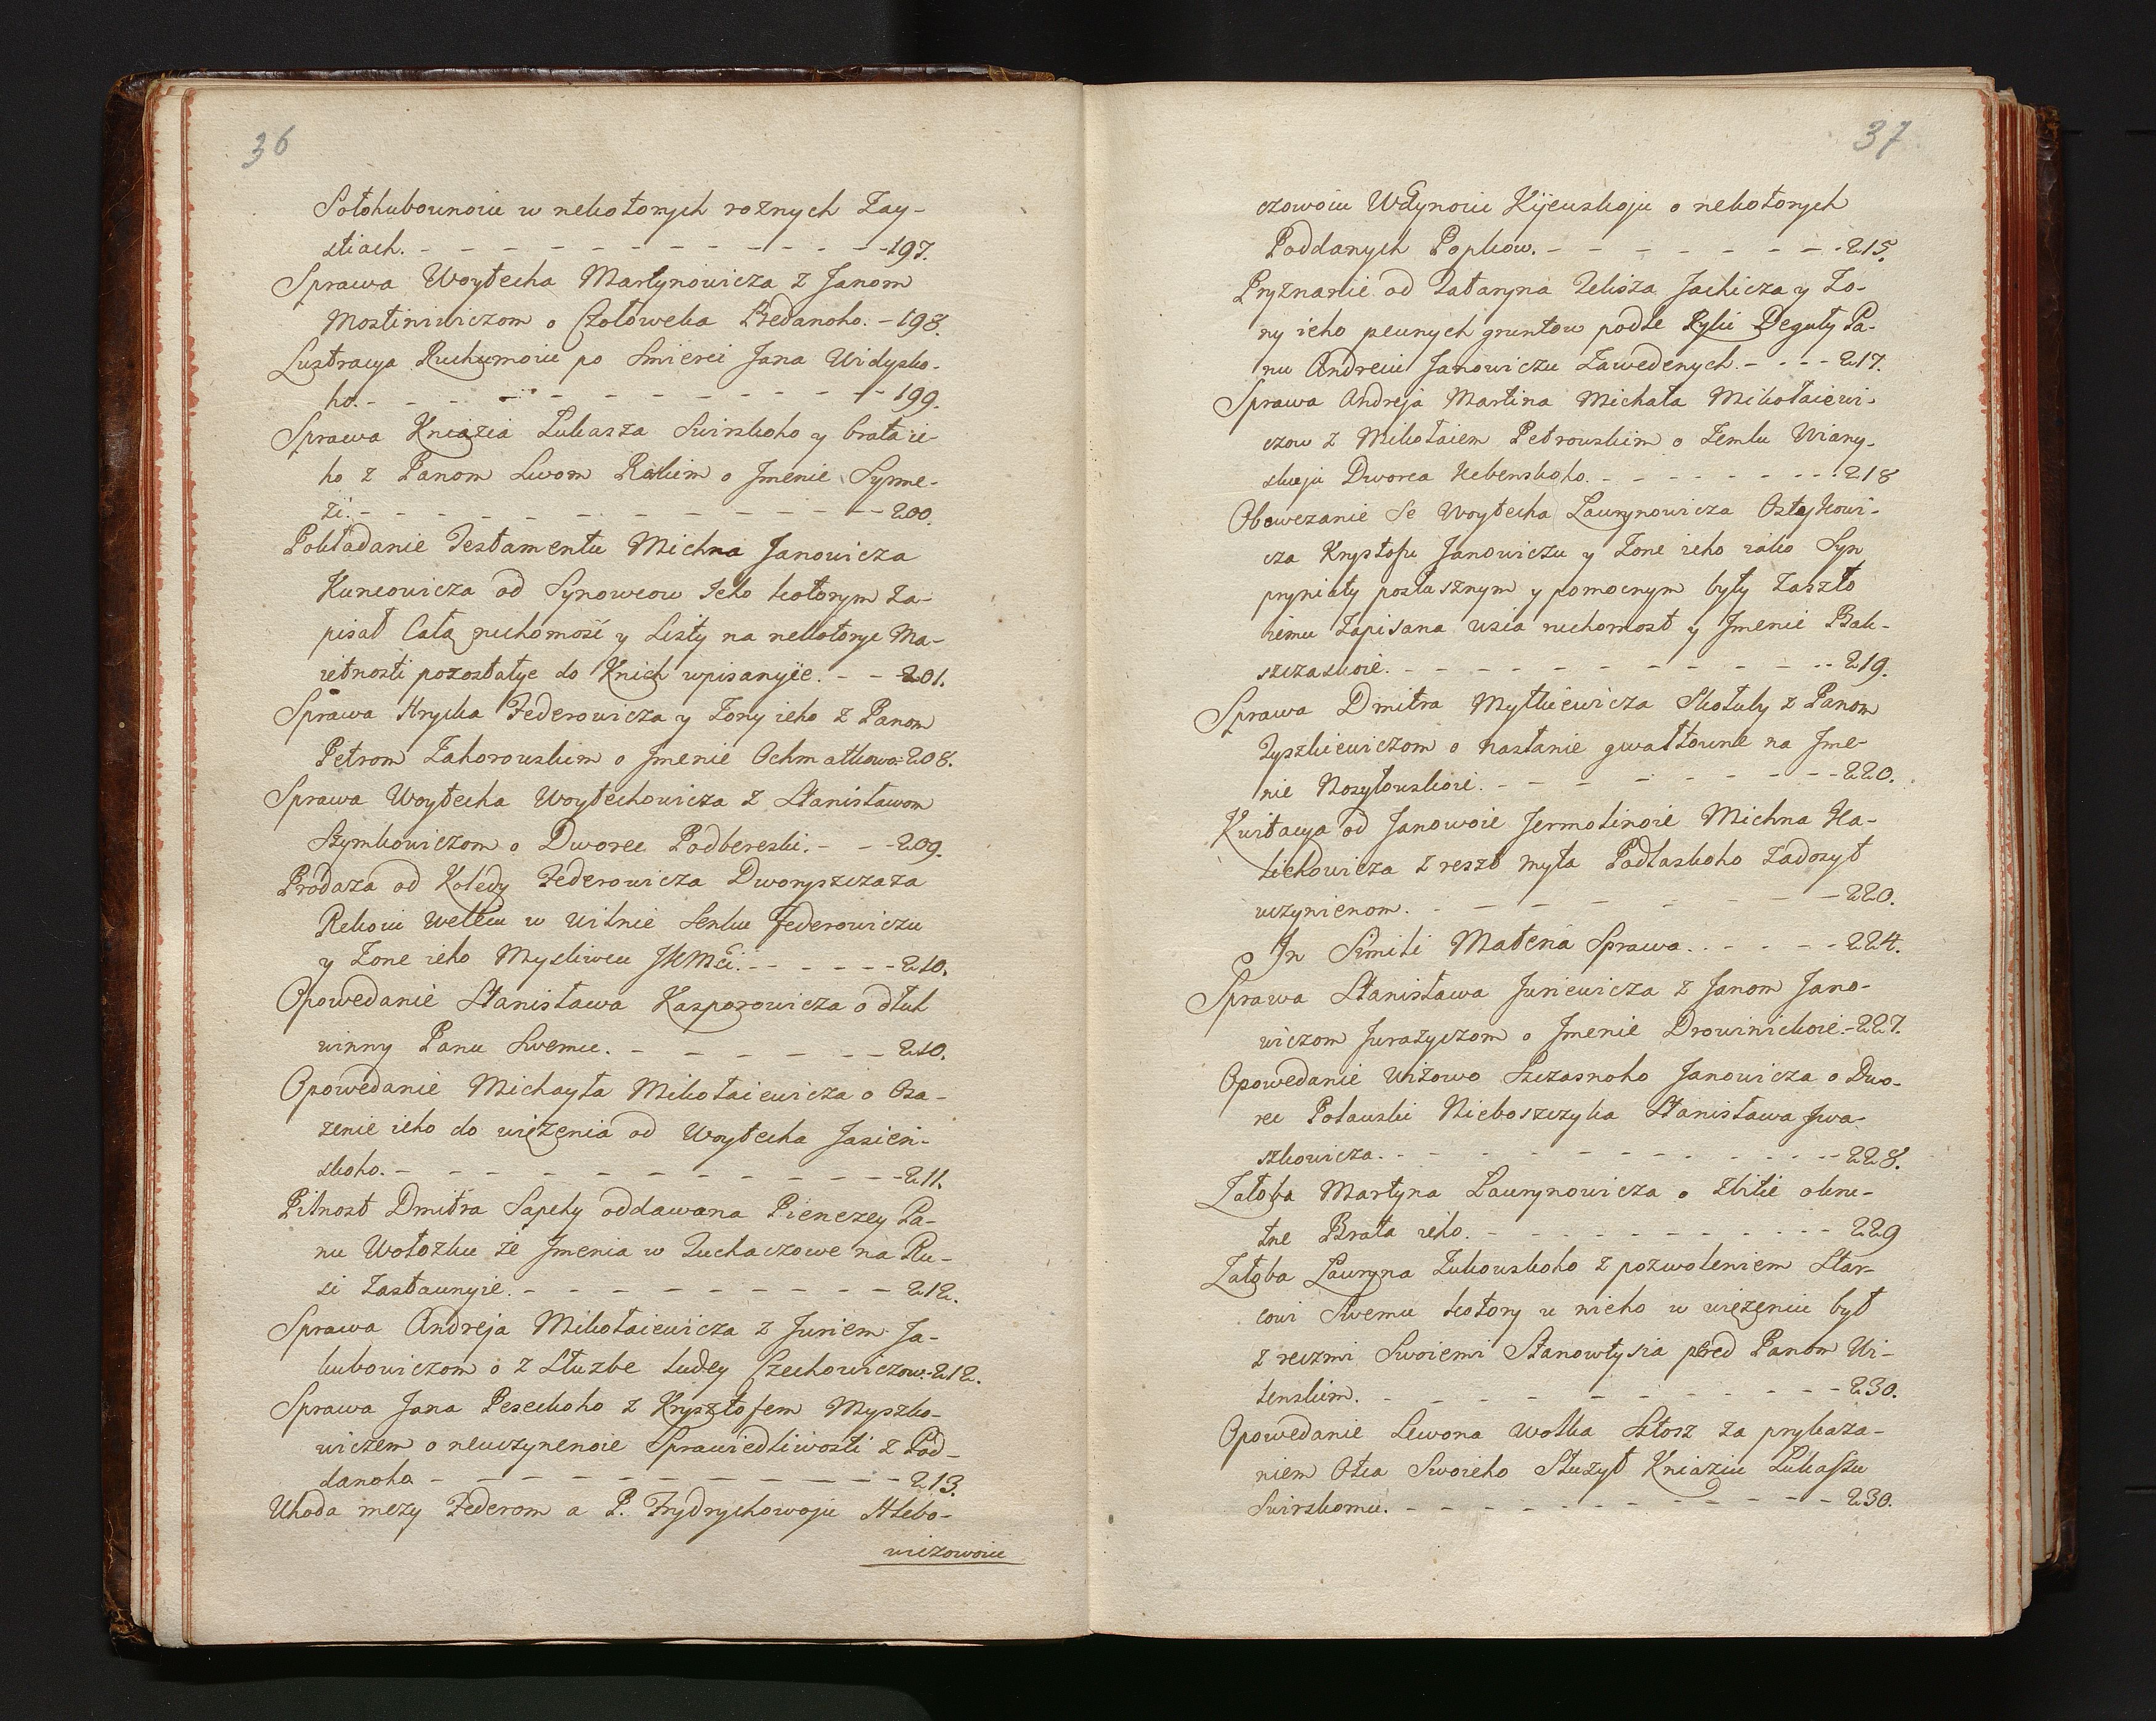 36
Sołohubownoiu w nekotorych roznych Zay-
stiach. - - - - - - - - - - - 197.
Sprawa Woytecha Martynowicza z Janom
Mostiniwiczom o Człoweka Zbedanoho. - 198.
Lustracya Ruchomoiu po Smierci Jana Widysko-
ho. - - - - - - - - - - - - 199.
Sprawa Kniazia Łukasza Swirskoho y brata ie-
ho z Panom Lwom Rolim o Jmenie Syrme-
ži. - - - - - - - - - - - - 200.
Pokładanie Testamentu Michna Janowicza
Kuncowicza od Synowcow Jeho kotorym Za-
pisał Całą ruchomość y Listy na nekotorye Ma-
ietnosti pozostałye do Knich wpisanyie. - - 201.
Sprawa Hryćka Federowicza y Żony ieho z Panom
Petrom Zahorowskim o Jmenie Ochmatkowo 208.
Sprawa Woytecha Woytechowicza z Stanisławom
Szymkowiczom o Dworec Podbereski. - - - 209.
Prodaża od Kolędy Federowicza Dworyszcza za
Rekoiu Welleiu w Wilnie Senku Federowiczu
y Żone ieho Mysliwcu JKMći. - - - - - - 210.
Opowedanie Stanisława Kasporowicza o dłuh
winny Panu Swemu. - - - - - - - 210.
Opowedanie Michayła Mikołaiewicza o Osa-
zenie ieho do więzenia od Woytecha Jasien-
skoho. - - - - - - - - - - - - 211.
Pilnost Dmitra Sapehy oddawana Pienezey Pa-
nu Wołozku że Jmenia w Tuchaczowe na Ru-
si Zastawnyie. - - - - - - - - - 212.
Sprawa Andreja Mikołaiewicza z Juriem Ja-
kubowiczom o z Służbe ludey Czechowiczow. - 212.
Sprawa Jana Peseckoho z Krysztofem Myszko-
wiczem o neuczynenoie Sprawiedliwosti z Pod-
danoho - - - - - - - - - - - 213.
Uhoda mezy Federom a P. Frydrychowoju Hlebo-
wiczowoiu
37
czowoiu WDynoiu Kijewskoju o nekotorych
Poddanych Popkow. - - - - - - - - 215.
Pryznanie od Tataryna Jelioza Jachicza y Żo-
ny ieho pewnych gruntow podle Rylii Deguty Pa-
nu Andreiu Janowiczu Zawedenych. - - - - 217.
Sprawa Andreja Martina Michała Mikołaiewi-
czow z Mikołaiem Petrowskim o Zemlu Wiany-
skuju Dworca Hebenskoho. - - - - - - - - 218
Obowezanie Se Woytecha Ławrynowicza Ostykowi-
cza Krystofu Janowiczu y Żone ieho iako Syn
pryniaty posłusznym y pomocnym byty Zaszło
iemu Zapisana usia ruchomost y Jmenie Bak-
szczaskoie. - - - - - - - - - - - 219.
Sprawa Dmitra Mytkiewicza Skołuby z Panom
Tyszkiewiczom o nastanie gwałtowne na Jme-
nie Nosyłowskoie. - - - - - - - - - 220.
Kwitacya od Janowoie Jermolinoie Michna Ha-
lickowicza z reszt myta Podlaskoho Zadosyt
uczynienom. - - - - - - - - - 220.
In Simili Materia Sprawa. - - - - - 224.
Sprawa Stanisława Juriewicza z Janom Jano-
wiczom Jurażyczom o Jmenie Drowinickoie. - 227.
Opowedanie Wiżowo Szczasnoho Janowicza o Dwo-
rec Poławski Nieboszczyka Stanisława Jwa-
szkowicza. - - - - - - - - - - - - 228.
Żałoba Martyna Ławrynowicza o Zbitie okru-
tne Brata ieho. - - - - - - - - - - - 229
Żałoba Ławryna Zukowskoho z pozwoleniem Star-
cowi Swemu kotory u nieho w więzeniu był
z reczmi Swoiemi Stanowłysia pered Panom Wi-
lenskim. - - - - - - - - - - - - 230.
Opowedanie Lewona Wołka Sztosz za prykaza-
niem Otca Swoieho Służył Kniaziu Łukaszu
Swirskomu. - - - - - - - - - - - 230.